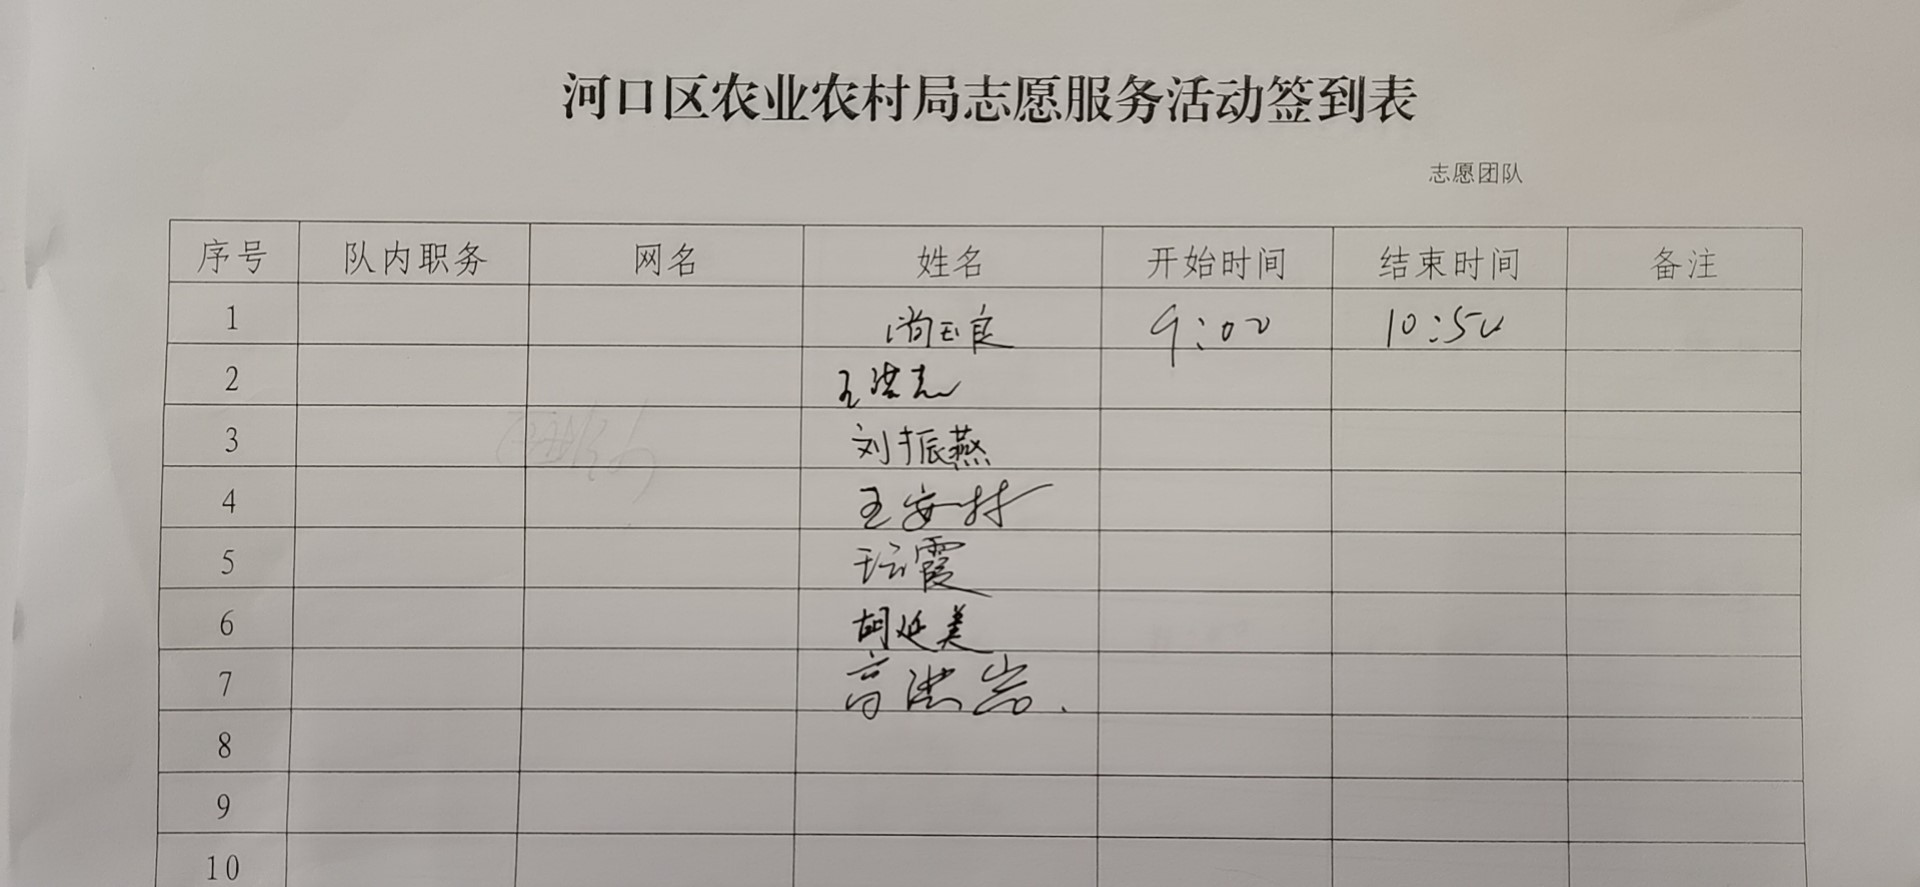 河口区农业农村局志愿服务活动签到表
志愿团队
序号 队内职务 网名 姓名 开始时间 结束时间 备注
1 尚玉良 9:00 10:50
2 王洪志
3 刘振燕
4 王安村
5 霞
6 胡延美
7 高洪岩.
8
9
10